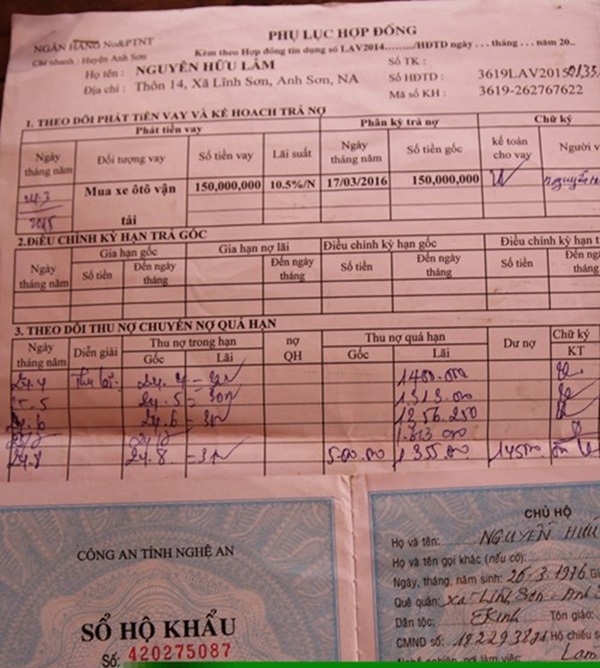 PHỤ LỤC HỢP ĐỒNG
NGÂN HÀNG No&PTNT
Kèm theo Hợp đồng tín dụng số LAV2014......../HĐTD ngày . . . tháng . . . năm 20..
Chi nhánh : Huyện Anh Sơn
Họ tên : NGUYỄN HỮU LÂM
Số TK :
Địa chỉ : Thôn 14, Xã Lĩnh Sơn, Anh Sơn, NA
Số HĐTD : 3619LAV2015
Mã số KH : 3619-262767622
1. THEO DÕI PHÁT TIỀN VAY VÀ KẾ HOẠCH TRẢ NỢ
Phát tiền vay Phân kỳ trả nợ Chữ ký
Ngày tháng năm Đối tượng vay Số tiền vay Lãi suất Ngày tháng năm Số tiền gốc kế toán cho vay Người v
24.3 2015 Mua xe ôtô vận tải 150,000,000 10.5%/N 17/03/2016 150,000,000
2.ĐIỀU CHỈNH KỲ HẠN TRẢ GỐC
Gia hạn gốc Gia hạn nợ lãi Điều chỉnh kỳ hạn gốc Điều chỉnh kỳ hạn t
Ngày tháng năm Số tiền Đến ngày tháng Đến ngày tháng Số tiền Đến ngày tháng Số tiền Đến ngà tháng
3. THEO DÕI THU NỢ CHUYỂN NỢ QUÁ HẠN
Ngày tháng năm Diễn giải Thu nợ trong hạn nợ QH Thu nợ quá hạn Dư nợ Chữ ký
Gốc Lãi Gốc Lãi KT
24.4 Thu lãi 1400.000
25.5 24.5 1.313.000
24.6 24.6 1.356.250
1.313 000
24.8 24.8 500.000 1355.000
CÔNG AN TỈNH NGHỆ AN
SỔ HỘ KHẨU
Số: 420275087
CHỦ HỘ
Họ và tên: NGUYỄN HỮU
Họ và tên gọi khác (nếu có):
Ngày, tháng, năm sinh: 26.3.1976 Gi
Quê quán: Xã Lĩnh Sơn - Anh S
Dân tộc: Kinh Tôn giáo:
CMND số: Hộ chiếu s
Làm